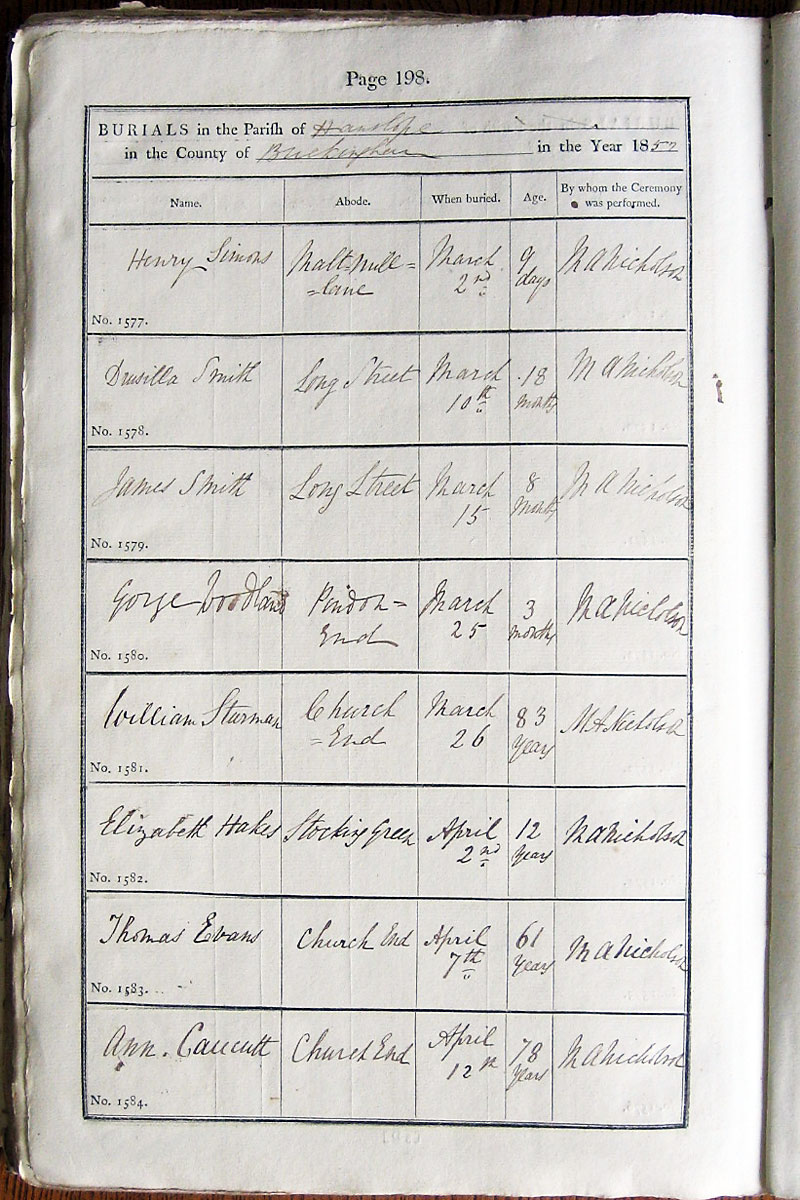 Page 198.
BURIALS in the Parish of Hanslope
in the County of Buckingham in the Year 1852
Name. Abode. When buried. Age. By whom the Ceremony was performed.
Henry Simons Malt-mill= March 9 M A Nicholson
=lane 2nd days
No. 1577.
Drusilla Smith Long Street March 18 M A Nicholson
10th months
No. 1578.
James Smith Long Street March 8 M A Nicholson
15 months
No. 1579.
Gorge Woodland Pindon= March 3 M A Nicholson
End 25 months
No. 1580.
William Sturman Church March 83 M A Nicholson
=End 26 years
No. 1581.
Elizabeth Hakes Stocking Green April 12 M A Nicholson
2nd years
No. 1582.
Thomas Evans Church End April 61 M A Nicholson
7th years
No. 1583.
Ann. Caucutt Church End April 78 M A Nicholson
12th years
No. 1584.